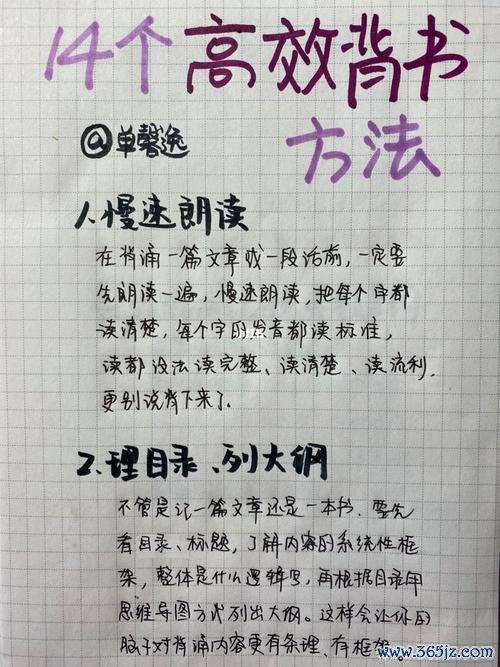 14个高效背书
方法
@单馨逸
1.慢速朗读
在背诵一篇文章或一段话前，一定要
先朗读一遍，慢速朗读，把每个字都
读清楚，每个字的发音都读标准，
读都没法读完整、读清楚、读流利，
更别说背下来了。
2.理目录、列大纲
不管是记一篇文章还是一本书，要先
看目录、标题，了解内容的系统性框
架，整体是什么逻辑写，再根据目录用
思维导图方式列出大纲。这样会让你的
脑子对背诵内容更有条理、有框架
www.365jz.com